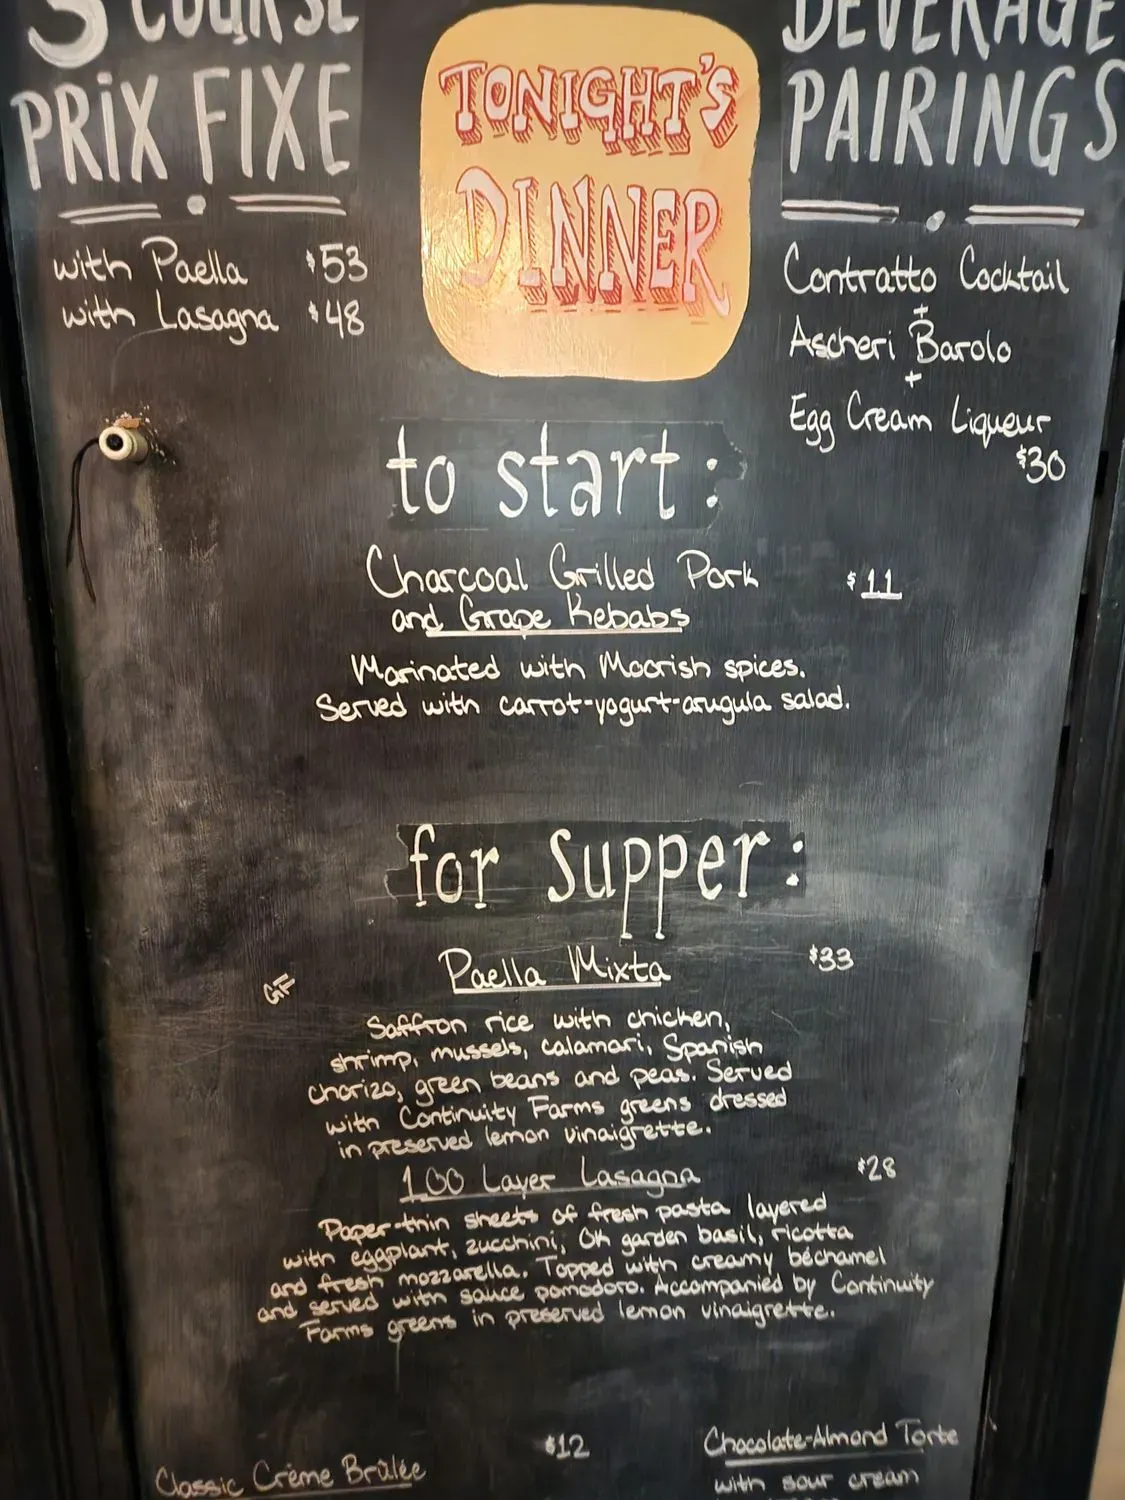 3 COURSE
PRiX FIXE
with Paella $53
with Lasagna $48
TONIGHT'S
DINNER
BEVERAGE
PAIRINGS
Contratto Cocktail
+
Ascheri Barolo
+
Egg Cream Liqueur
$30
to start:
Charcoal Grilled Pork $11
and Grape Kebabs
Marinated with Moorish spices.
Served with carrot-yogurt-arugula salad.
for supper:
Paella Mixta $33
GF
Saffron rice with chicken,
shrimp, mussels, calamari, Spanish
chorizo, green beans and peas. Served
with Continuity Farms greens dressed
in preserved lemon vinaigrette.
100 Layer Lasagna $28
Paper-thin sheets of fresh pasta layered
with eggplant, zucchini, OK garden basil, ricotta
and fresh mozzarella. Topped with creamy béchamel
and served with sauce pomodoro. Accompanied by Continuity
Farms greens in preserved lemon vinaigrette.
Classic Crème Brûlée $12
Chocolate-Almond Torte
with sour cream